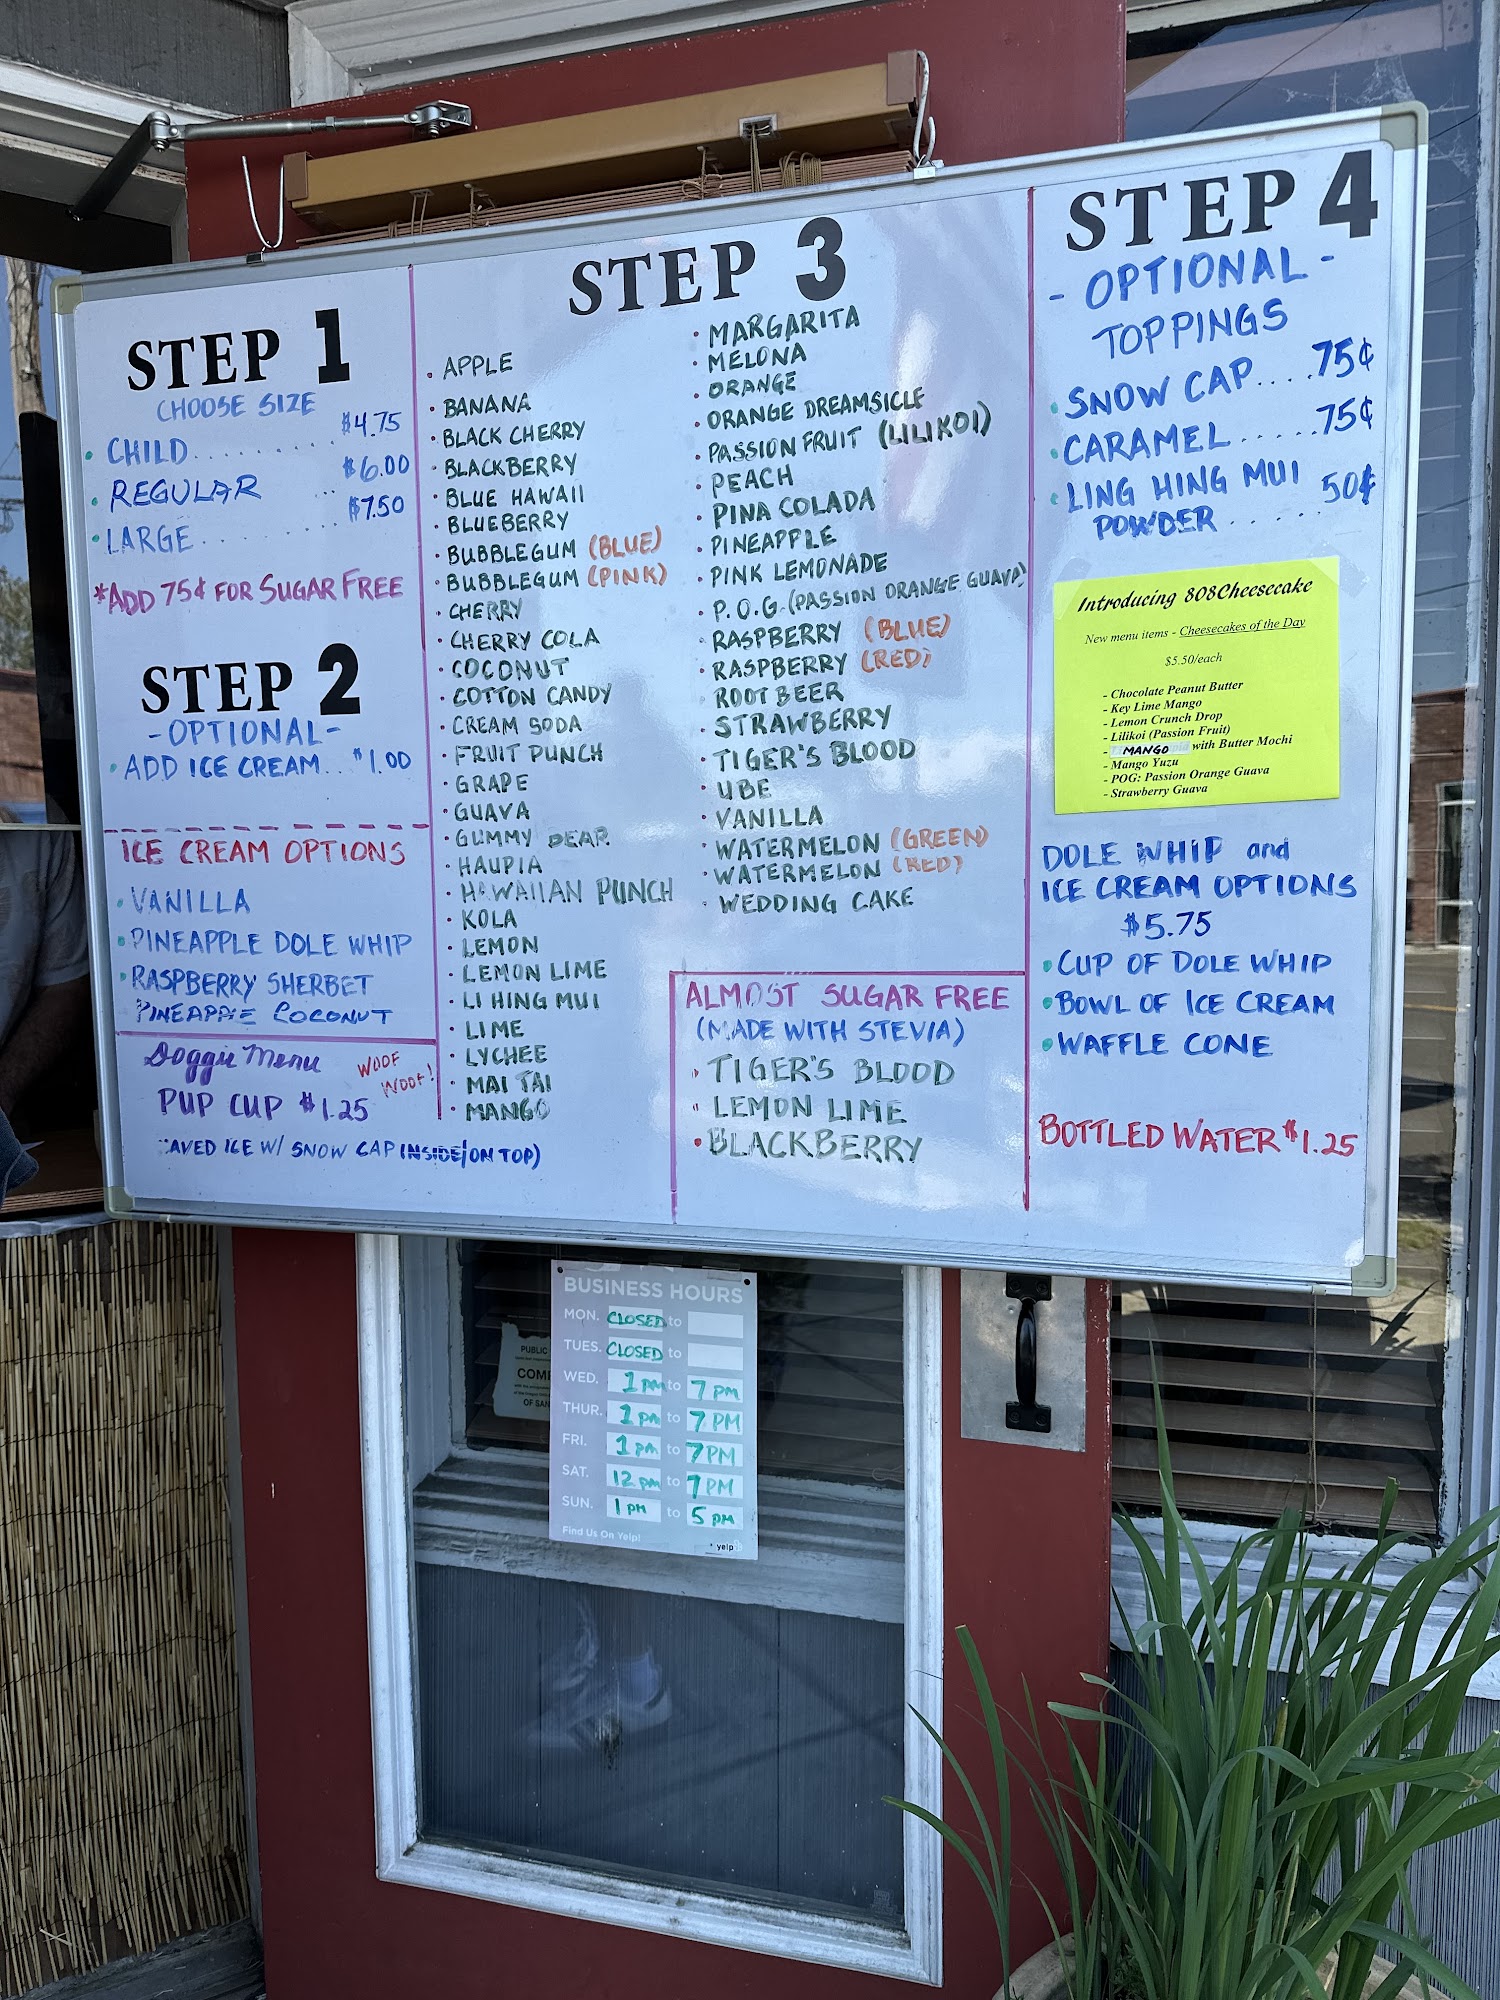 STEP 1
CHOOSE SIZE
• CHILD........... $4.75
• REGULAR ... $6.00
• LARGE........... $7.50
*ADD 75¢ FOR SUGAR FREE
STEP 2
-OPTIONAL-
• ADD ICE CREAM... $1.00
ICE CREAM OPTIONS
• VANILLA
• PINEAPPLE DOLE WHIP
• RASPBERRY SHERBET
PINEAPPLE COCONUT
Doggie Menu
WOOF
WOOF!
PUP CUP $1.25
AVED ICE W/ SNOW CAP INSIDE/ON TOP)
STEP 3
• APPLE
• BANANA
• BLACK CHERRY
• BLACKBERRY
• BLUE HAWAII
• BLUEBERRY
• BUBBLEGUM (BLUE)
• BUBBLEGUM (PINK)
• CHERRY
• CHERRY COLA
• COCONUT
• COTTON CANDY
• CREAM SODA
• FRUIT PUNCH
• GRAPE
• GUAVA
• GUMMY BEAR
• HAUPIA
• HAWAIIAN PUNCH
• KOLA
• LEMON
• LEMON LIME
• LI HING MUI
• LIME
• LYCHEE
• MAI TAI
• MANGO
• MARGARITA
• MELONA
• ORANGE
• ORANGE DREAMSICLE
• PASSION FRUIT (LILIKOI)
• PEACH
• PINA COLADA
• PINEAPPLE
• PINK LEMONADE
• P.O.G. (PASSION ORANGE GUAVA)
• RASPBERRY (BLUE)
• RASPBERRY (RED)
• ROOT BEER
• STRAWBERRY
• TIGER'S BLOOD
• UBE
• VANILLA
• WATERMELON (GREEN)
• WATERMELON (RED)
• WEDDING CAKE
ALMOST SUGAR FREE
(MADE WITH STEVIA)
• TIGER'S BLOOD
• LEMON LIME
• BLACKBERRY
STEP 4
- OPTIONAL -
TOPPINGS
• SNOW CAP.... 75¢
• CARAMEL...... 75¢
• LING HING MUI
POWDER...... 50¢
Introducing 808Cheesecake
New menu items - Cheesecakes of the Day
$5.50/each
- Chocolate Peanut Butter
- Key Lime Mango
- Lemon Crunch Drop
- Lilikoi (Passion Fruit)
- MANGO with Butter Mochi
- Mango Yuzu
- POG: Passion Orange Guava
- Strawberry Guava
DOLE WHIP and
ICE CREAM OPTIONS
$5.75
• CUP OF DOLE WHIP
• BOWL OF ICE CREAM
• WAFFLE CONE
BOTTLED WATER $1.25
BUSINESS HOURS
MON. CLOSED to
TUES. CLOSED to
WED. 1 pm to 7 PM
THUR. 1 pm to 7 PM
FRI. 1 pm to 7PM
SAT. 12 pm to 7PM
SUN. 1 PM to 5 PM
Find Us On Yelp!
yelp
PUBLIC
COM
OF SAN